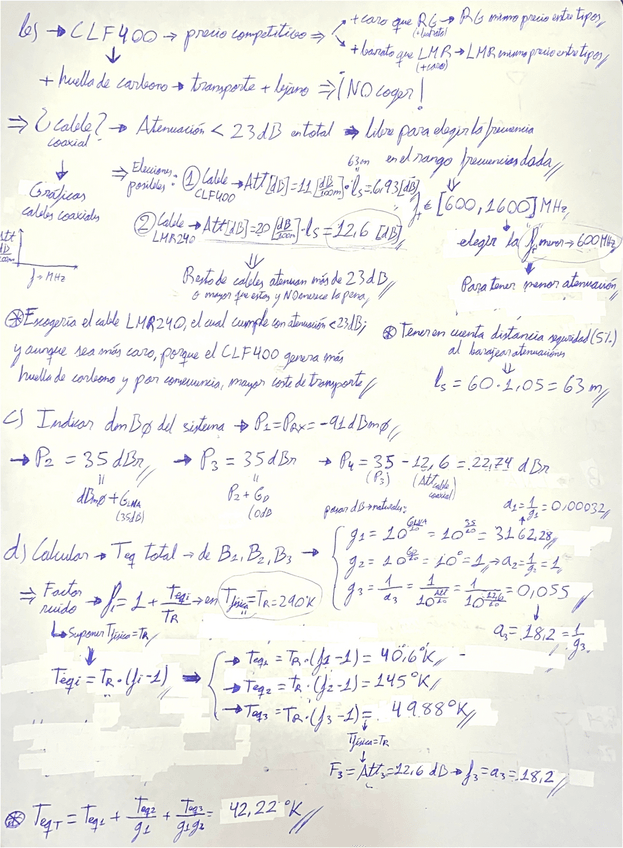 b) → CLF400 → precio competitivo ⇒ + caro que RG → RG mismo precio entre tipos
(+ barato)
+ barato que LMR → LMR mismo precio entre tipos
(+ caro)
+ huella de carbono → transporte + lejano ⇒ ¡NO coger!
⇒ ¿Cable? → Atenuación < 23dB en total ⇒ libre para elegir la frecuencia
coaxial
en el rango frecuencias dada
⇒ Elecciones posibles: ① Cable CLF400 → Att[dB] = 11 [dB/100m] · ls = 6,93[dB]
63m
f₁ ∈ [600, 1600] MHz
Gráficas
cables coaxiales
② Cable LMR240 → Att[dB] = 20 [dB/100m] · ls = 12,6 [dB]
elegir la f menor → 600MHz
Att
dB
100m
f → MHz
Resto de cables atenuan más de 23dB
o mayor que estos y NO merece la pena
Para tener menor atenuación
⊛ Escogería el cable LMR240, el cual cumple con atenuación < 23dB;
y aunque sea más caro, porque el CLF400 genera más
huella de carbono y por consecuencia, mayor coste de transporte
⊛ Tener en cuenta distancia seguridad (5%)
al barajear atenuaciones
ls = 60 · 1,05 = 63 m
c) Indicar dmBø del sistema → P1 = PRX = -91 dBmø
→ P2 = 35 dBr → P3 = 35 dBr → P4 = 35 - 12,6 = 22,74 dBr
(P3) (Att cable coaxial)
dBmø + GLNA
(35dB)
P2 + G0
(0dB
pasar dB → naturales
a1 = 1/g1 = 0,00032
d) Calcular → Teq total → de B1, B2, B3 →
g1 = 10^(GLNA/10) = 10^(35/10) = 3162,28
g2 = 10^(G2/10) = 10° = 1 → a2 = 1/g2 = 1
g3 = 1/a3 = 1/10^(Att/10) = 1/10^(12,6/10) = 0,055
a3 = 18,2 = 1/g3
⇒ Factor ruido → fi = 1 + Teqi/TR → en Tfísica = TR = 290K
↳ Suponer Tfísica = TR
Teqi = TR · (fi - 1) ⇒
→ Teq1 = TR · (f1 - 1) = 40,6°K
→ Teq2 = TR · (f2 - 1) = 145°K
→ Teq3 = TR · (f3 - 1) = 4988°K
Tfísica = TR
F3 = Att3 = 12,6 dB → f3 = a3 = 18,2
⊛ TeqT = Teq1 + Teq2/g1 + Teq3/g1g2 = 42,22 °K